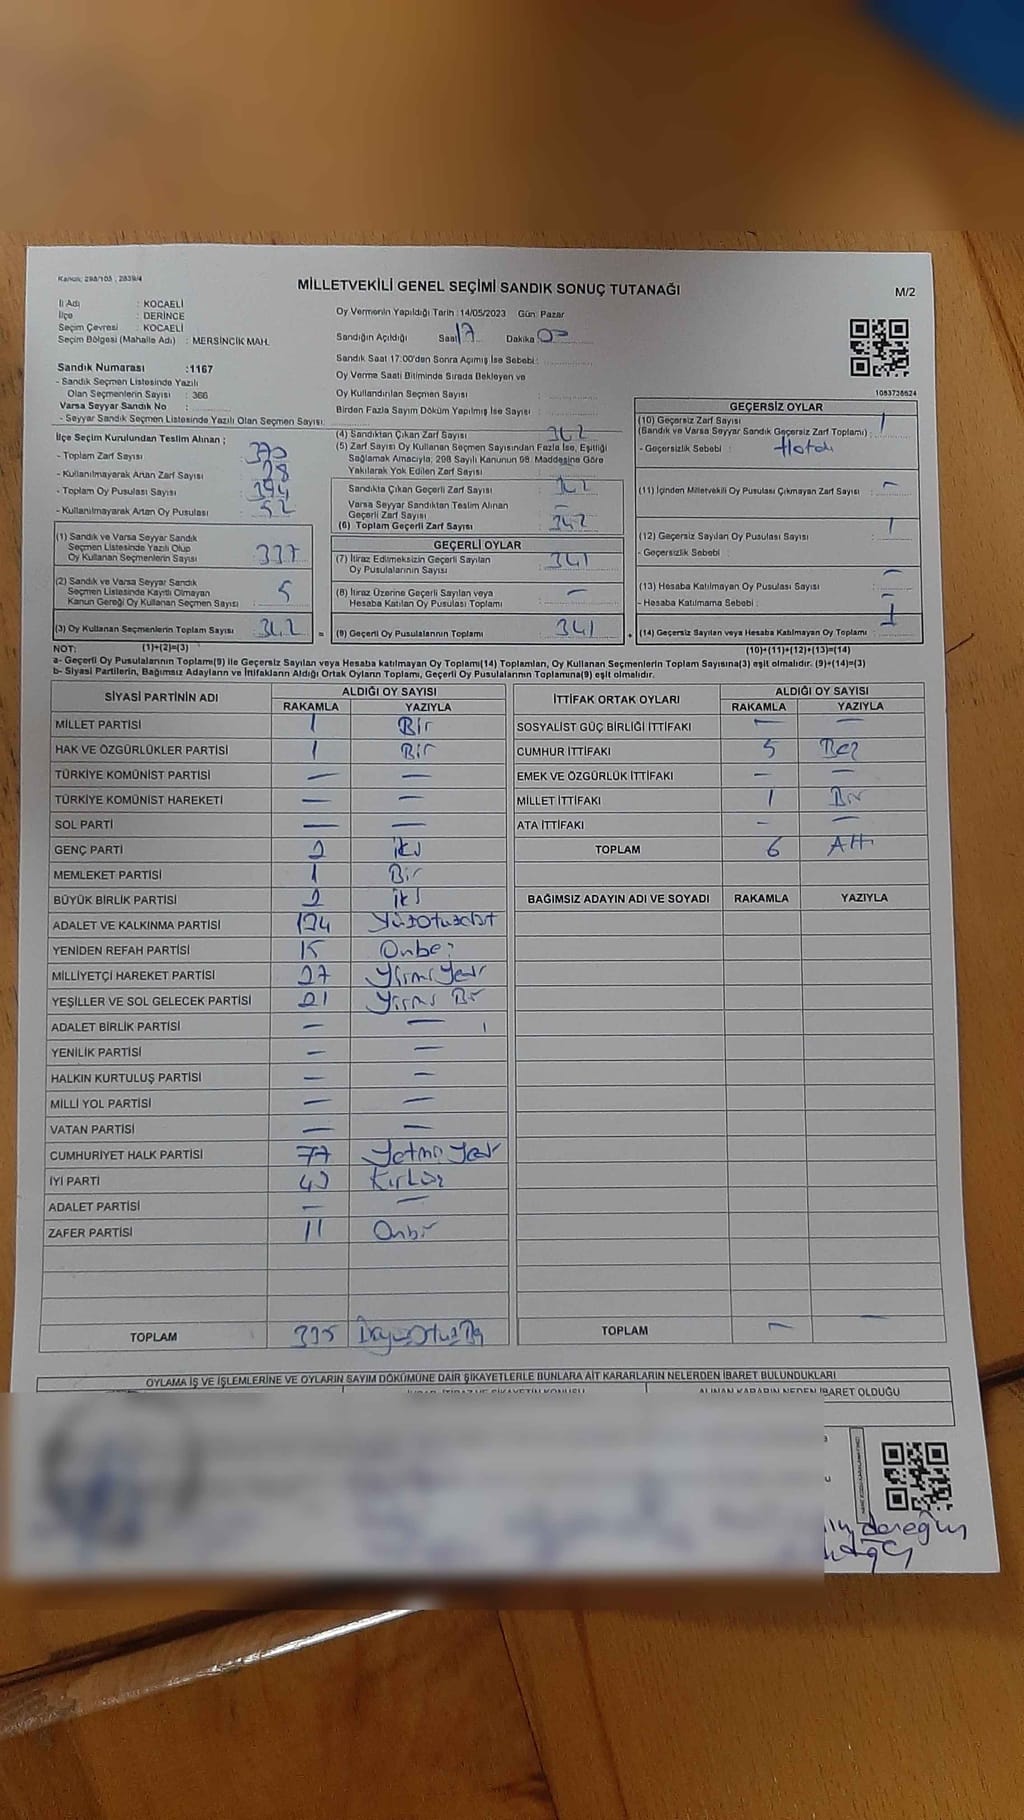 Kanun: 298/105 , 2839/4
MİLLETVEKİLİ GENEL SEÇİMİ SANDIK SONUÇ TUTANAĞI
M/2
İl Adı : KOCAELİ
İlçe : DERİNCE
Seçim Çevresi : KOCAELİ
Seçim Bölgesi (Mahalle Adı) : MERSİNCİK MAH.
Sandık Numarası :1167
- Sandık Seçmen Listesinde Yazılı
Olan Seçmenlerin Sayısı : 366
Varsa Seyyar Sandık No :
- Seyyar Sandık Seçmen Listesinde Yazılı Olan Seçmen Sayısı:
Oy Vermenin Yapıldığı Tarih :14/05/2023 Gün: Pazar
Sandığın Açıldığı Saat 17 Dakika 00
Sandık Saat 17:00'den Sonra Açımış İse Sebebi :
Oy Verme Saati Bitiminde Sırada Bekleyen ve
Oy Kullandırılan Seçmen Sayısı :
Birden Fazla Sayım Döküm Yapılmış İse Sayısı :
1083738624
İlçe Seçim Kurulundan Teslim Alınan ;
- Toplam Zarf Sayısı : 370
- Kullanılmayarak Artan Zarf Sayısı : 28
- Toplam Oy Pusulası Sayısı : 394
- Kullanılmayarak Artan Oy Pusulası : 52
(1) Sandık ve Varsa Seyyar Sandık
Seçmen Listesinde Yazılı Olup
Oy Kullanan Seçmenlerin Sayısı : 337
(2) Sandık ve Varsa Seyyar Sandık
Seçmen Listesinde Kayıtlı Olmayan
Kanun Gereği Oy Kullanan Seçmen Sayısı : 5
(3) Oy Kullanan Seçmenlerin Toplam Sayısı : 342 =
(4) Sandıktan Çıkan Zarf Sayısı : 342
(5) Zarf Sayısı Oy Kullanan Seçmen Sayısından Fazla İse, Eşitliği
Sağlamak Amacıyla; 298 Sayılı Kanunun 98. Maddesine Göre
Yakılarak Yok Edilen Zarf Sayısı : —
Sandıkta Çıkan Geçerli Zarf Sayısı : 342
Varsa Seyyar Sandıktan Teslim Alınan
Geçerli Zarf Sayısı : —
(6) Toplam Geçerli Zarf Sayısı : 342
GEÇERLİ OYLAR
(7) İtiraz Edilmeksizin Geçerli Sayılan
Oy Pusulalarının Sayısı : 341
(8) İtiraz Üzerine Geçerli Sayılan veya
Hesaba Katılan Oy Pusulası Toplamı : —
(9) Geçerli Oy Pusulalarının Toplamı : 341 +
GEÇERSİZ OYLAR
(10) Geçersiz Zarf Sayısı
(Sandık ve Varsa Seyyar Sandık Geçersiz Zarf Toplamı) : 1
- Geçersizlik Sebebi : Hatalı
(11) İçinden Milletvekili Oy Pusulası Çıkmayan Zarf Sayısı : —
(12) Geçersiz Sayılan Oy Pusulası Sayısı : 1
- Geçersizlik Sebebi :
(13) Hesaba Katılmayan Oy Pusulası Sayısı : —
- Hesaba Katılmama Sebebi : —
(14) Geçersiz Sayılan veya Hesaba Katılmayan Oy Toplamı : 1
NOT: (1)+(2)=(3) (10)+(11)+(12)+(13)=(14)
a- Geçerli Oy Pusulalarının Toplamı(9) ile Geçersiz Sayılan veya Hesaba katılmayan Oy Toplamı(14) Toplamları, Oy Kullanan Seçmenlerin Toplam Sayısına(3) eşit olmalıdır. (9)+(14)=(3)
b- Siyasi Partilerin, Bağımsız Adayların ve İttifakların Aldığı Ortak Oyların Toplamı, Geçerli Oy Pusulalarının Toplamına(9) eşit olmalıdır.
SİYASİ PARTİNİN ADI ALDIĞI OY SAYISI
RAKAMLA YAZIYLA
MİLLET PARTİSİ 1 Bir
HAK VE ÖZGÜRLÜKLER PARTİSİ 1 Bir
TÜRKİYE KOMÜNİST PARTİSİ — —
TÜRKİYE KOMÜNİST HAREKETİ — —
SOL PARTİ — —
GENÇ PARTİ 2 iki
MEMLEKET PARTİSİ 1 Bir
BÜYÜK BİRLİK PARTİSİ 2 iki
ADALET VE KALKINMA PARTİSİ 134 Yüzotuzdört
YENİDEN REFAH PARTİSİ 15 Onbeş
MİLLİYETÇİ HAREKET PARTİSİ 27 Yirmi Yedi
YEŞİLLER VE SOL GELECEK PARTİSİ 21 Yirmi Bir
ADALET BİRLİK PARTİSİ — —
YENİLİK PARTİSİ — —
HALKIN KURTULUŞ PARTİSİ — —
MİLLİ YOL PARTİSİ — —
VATAN PARTİSİ — —
CUMHURİYET HALK PARTİSİ 77 Yetmiş Yedi
İYİ PARTİ 43 Kırküç
ADALET PARTİSİ — —
ZAFER PARTİSİ 11 Onbir
TOPLAM 335 Üçyüz Otuz Beş
İTTİFAK ORTAK OYLARI ALDIĞI OY SAYISI
RAKAMLA YAZIYLA
SOSYALİST GÜÇ BİRLİĞİ İTTİFAKI — —
CUMHUR İTTİFAKI 5 Beş
EMEK VE ÖZGÜRLÜK İTTİFAKI — —
MİLLET İTTİFAKI 1 Bir
ATA İTTİFAKI — —
TOPLAM 6 Altı
BAĞIMSIZ ADAYIN ADI VE SOYADI RAKAMLA YAZIYLA
TOPLAM — —
OYLAMA İŞ VE İŞLEMLERİNE VE OYLARIN SAYIM DÖKÜMÜNE DAİR ŞİKAYETLERLE BUNLARA AİT KARARLARIN NELERDEN İBARET BULUNDUKLARI
ALINAN KARARIN NEDEN İBARET OLDUĞU